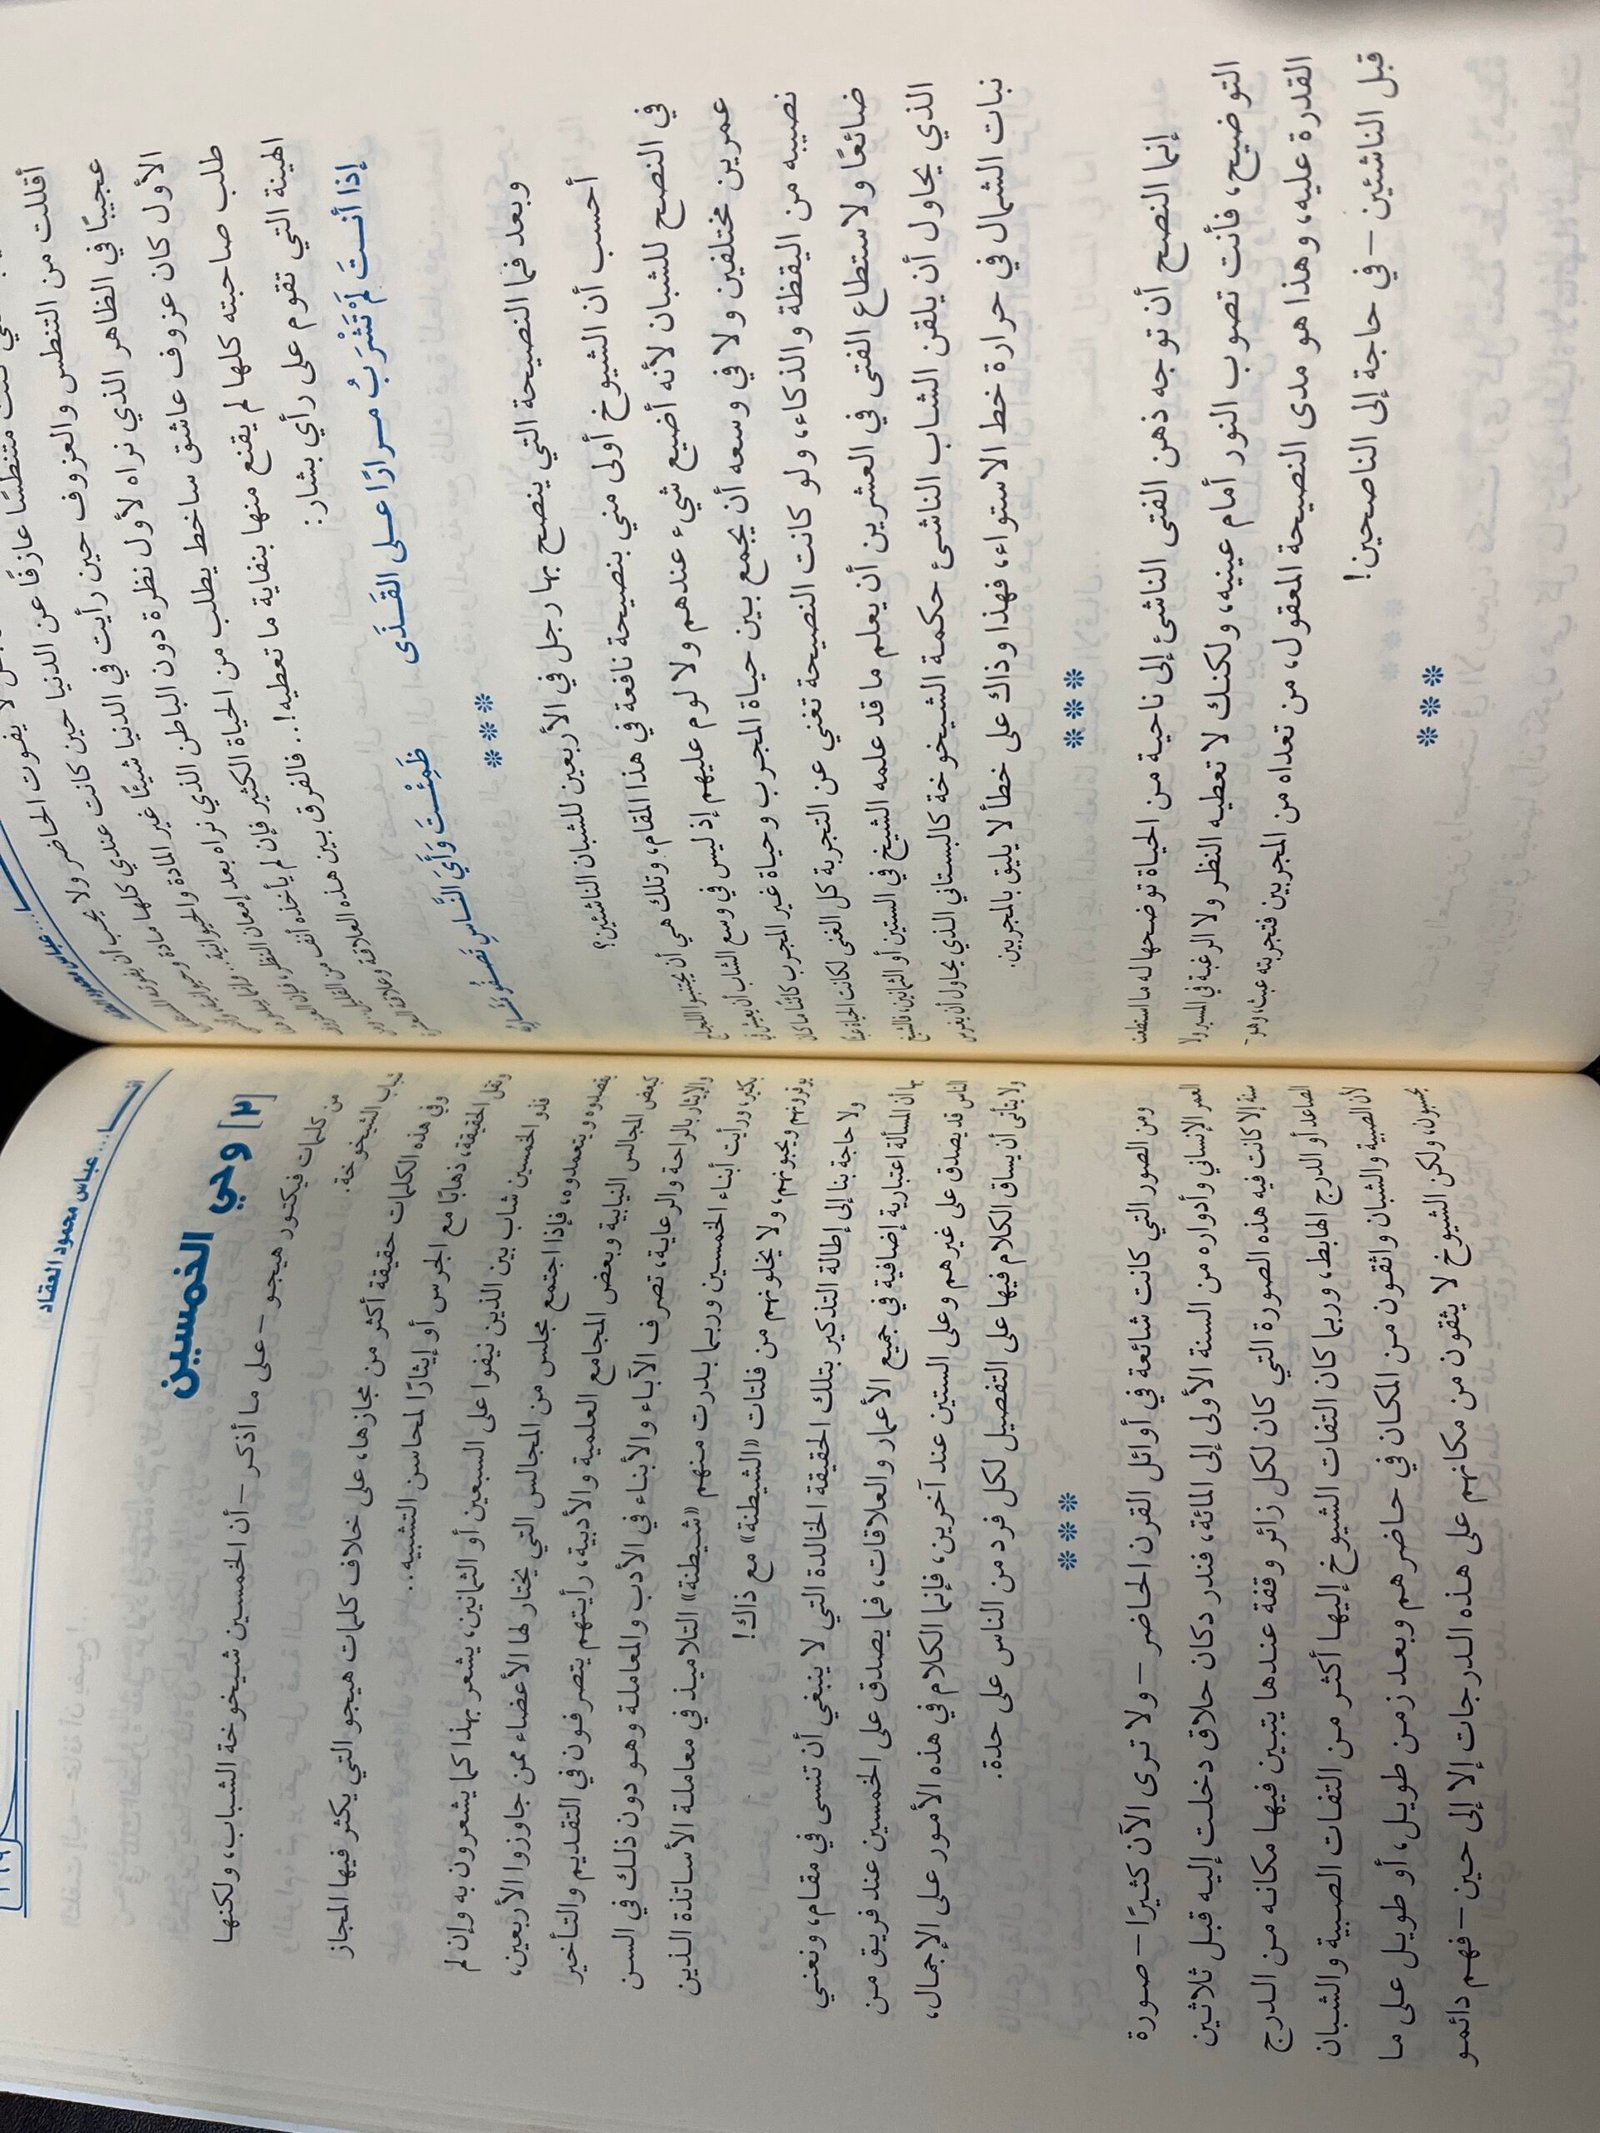 أنـــا... عباس محمود العقاد
أقللت من التنطس والعزوف حين رأيت في الدنيا حين كانت عندي كلها مادة وحيوانية
عجيبًا في الظاهر الذي نراه لأول نظرة دون الباطن الذي نراه بعد إمعان النظر، فإن العزوف
الأول كان عزوف عاشق ساخط يطلب من الحياة الكثير فإن لم يأخذه أنف من القليل
طلب صاحبته كلها لم يقنع منها بنفاية ما تعطيه!.. فالفرق بين هذه العلاقة وعلاقة
الهينة التي تقوم على رأي بشار:
إذا أنـستَ لَمْ تَشْرَبْ مـرارًا عـلى القَـذَى
ظَمِئْـتَ وَأَيُّ النَّـاسِ تَصْـفُو مَشَـارِبُهْ
***
وبعد فما النصيحة التي ينصح بها رجل في الأربعين للشبان الناشئين؟
أحسب أن الشيوخ أولى مني بنصيحة نافعة في هذا المقام، وتلك هي أن يجتنبوا اللجاج
في النصح للشبان لأنه أضيع شيء عندهم ولا لوم عليهم إذ ليس في وسع الشاب أن يعيش في
عمرين مختلفين ولا في وسعه أن يجمع بين حياة المجرب وحياة غير المجرب كائنًا ما كان
نصيبه من اليقظة والذكاء، ولو كانت النصيحة تغني عن التجربة كل الغنى لكانت الحياة عبثًا
ضائعًا ولاستطاع الفتى في العشرين أن يعلم ما قد علمه الشيخ في الستين أو الثمانين، فالشيخ
الذي يحاول أن يلقن الشاب الناشئ حكمة الشيخوخة كالبستاني الذي يحاول أن يغرس
نبات الشمال في حرارة خط الاستواء، فهذا وذاك على خطأ لا يليق بالمجربين.
***
إنما النصح أن توجه ذهن الفتى الناشئ إلى ناحية من الحياة توضحها له ما استطعت
التوضيح، فأنت تصوب النور أمام عينيه، ولكنك لا تعطيه النظر ولا الرغبة في المسير ولا
القدرة عليه، وهذا هو مدى النصيحة المعقول، من تعداه من المجربين فتجربته عبث، وهو-
قبل الناشئين – في حاجة إلى الناصحين!
***
أنـــا... عباس محمود العقاد
[٢] وحي الخمسين
من كلمات فيكتور هيجو – على ما أذكر – أن الخمسين شيخوخة الشباب، ولكنها
شباب الشيخوخة.
وفي هذه الكلمات حقيقة أكثر من مجازها، على خلاف كلمات هيجو التي يكثر فيها المجاز
وتقل الحقيقة، ذهابًا مع الجرس أو إيثارًا لمحاسن التشبيه..
فذو الخمسين شاب بين الذين نيفوا على السبعين أو الثمانين، يشعر بهذا كما يشعرون به وإن لم
يقصدوه ويتعمدوه، فإذا اجتمع مجلس من المجالس التي يختار لها الأعضاء ممن جاوزوا الأربعين،
كبعض المجالس النيابية وبعض المجامع العلمية والأدبية، رأيتهم يتصرفون في التقديم والتأخير
والإيثار بالراحة والرعاية، تصرف الآباء والأبناء في الأدب والمعاملة وهو دون ذلك في السن
بكثير، ورأيت أبناء الخمسين وربما بدرت منهم «شيطنة» التلاميذ في معاملة الأساتذة الذين
يوقرونهم ويحبونهم، ولا يخلونهم من فلتات «الشيطنة» مع ذاك!
ولا حاجة بنا إلى إطالة التذكير بتلك الحقيقة الخالدة التي لا ينبغي أن تنسى في مقام، ونعني
بها أن المسألة اعتبارية إضافية في جميع الأعمار والعلاقات، فما يصدق على الخمسين عند فريق من
الناس قد يصدق على غيرهم وعلى الستين عند آخرين، فإنما الكلام في هذه الأمور على الإجمال،
ولا يتأتى أن يساق الكلام فيها على التفصيل لكل فرد من الناس على حدة.
***
ومن الصور التي كانت شائعة في أوائل القرن الحاضر – ولا ترى الآن كثيرًا – صورة
العمر الإنساني وأدواره من السنة الأولى إلى المائة، فندر دكان حلاق دخلت إليه قبل ثلاثين
سنة إلا كانت فيه هذه الصورة التي كان لكل زائر وقفة عندها يتبين فيها مكانه من الدرج
الصاعد أو الدرج الهابط، وربما كان التفات الشيوخ إليها أكثر من التفات الصبية والشبان
لأن الصبية والشبان واثقون من المكان في حاضرهم وبعد زمن طويل، أو طويل على ما
يحسبون، ولكن الشيوخ لا يثقون من مكانهم على هذه الدرجات إلا إلى حين – فهم دائمو